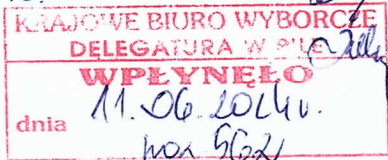 KRAJOWE BIURO WYBORCZE
DELEGATURA W PILE
WPŁYNĘŁO
dnia 11.06.2024r.
poz 562